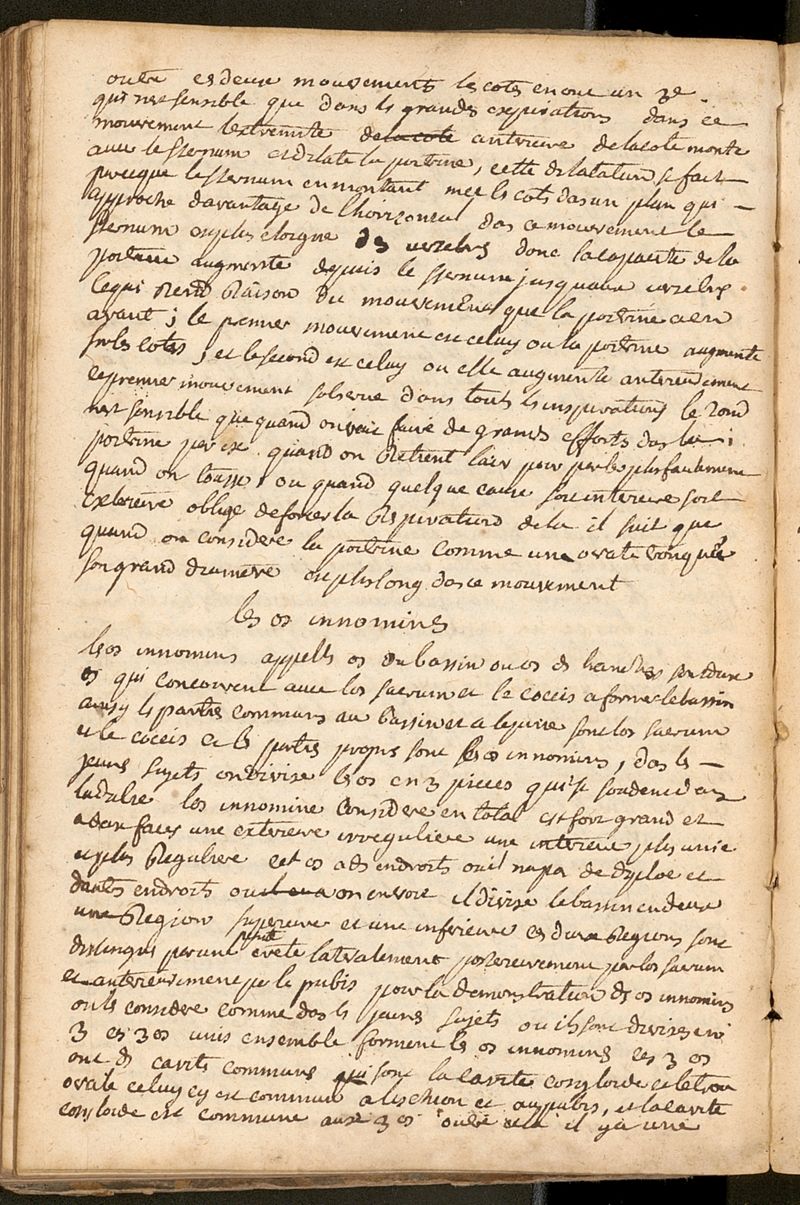 outre ces deux mouvements les cotes en ont un 3e
qui nest sensible que dans les grandes expirations dans ce
mouvement lextremite de la cote anterieure de la cote monte
avec le sternum et dilate la poitrine, cette dilatation se fait
parceque le sternum en montant met les cots das un plan qui
approche davantage de lhorizontal das ce mouvement le
sternum est plus eloigne des vertebres donc la capacite de la
poitrine augmente depuis le sternum jusquaux vertebres
ce qui rend raison du mouvement que la poitrine a en
avant; le premier mouvement est celuy ou la poitrine augmente
sur les cotes, et le second est celuy ou elle augmente anterieurement
ce premier mouvement sobserve dans touts les inspirations le 2ond
nest sensible que quand on veut faire de grands efforts das la
poitrine par ex quand on retient lair pour parler plus fautement
quand on tousse, ou quand quelque cause soit interieure soit
exterieure oblige de forcer la respiration de la il suit que
quand on considere la poitrine comme une ovale tronquée
son grand diametre est plus long das ce mouvement
les os innominés
les os innominés appellés os du bassin ou os des hanches sont deux
os qui concourent avec los sacrum et le coccis a former le bassin
ainsy les parties communes au bassin et a lepine sont los sacrum
et le coccis et les parties propres sont les os innominés, das les
jeunes sujets on divise les os en 3 pieces qui se soudent dans
ladulte los innominé consideré en total est fort grand et
a deux faces une exterieure irreguliere une interieure plus unie
et plus reguliere cet os a des endroits ou il na pas de diploe et
dautres endroits ou il en a on en voit il divise le bassin en deux
une region superieure et une inferieure ces deux regions sont
distingués par une petite crete lateralement posterieurement par los sacrum
et anterieurement par le pubis pour la demonstration des os innominés
on les considere comme das les jeunes sujets ou ils sont divisés en
3 ces 3 os unis ensemble forment les os innominés ces 3 os
ont des cavités communes qui sont la cavité cotyloide et le trou
ovale celuy cy est commun a lischion et au pubis, et la cavité
cotyloide est commune aux 3 os outre cela il y a une